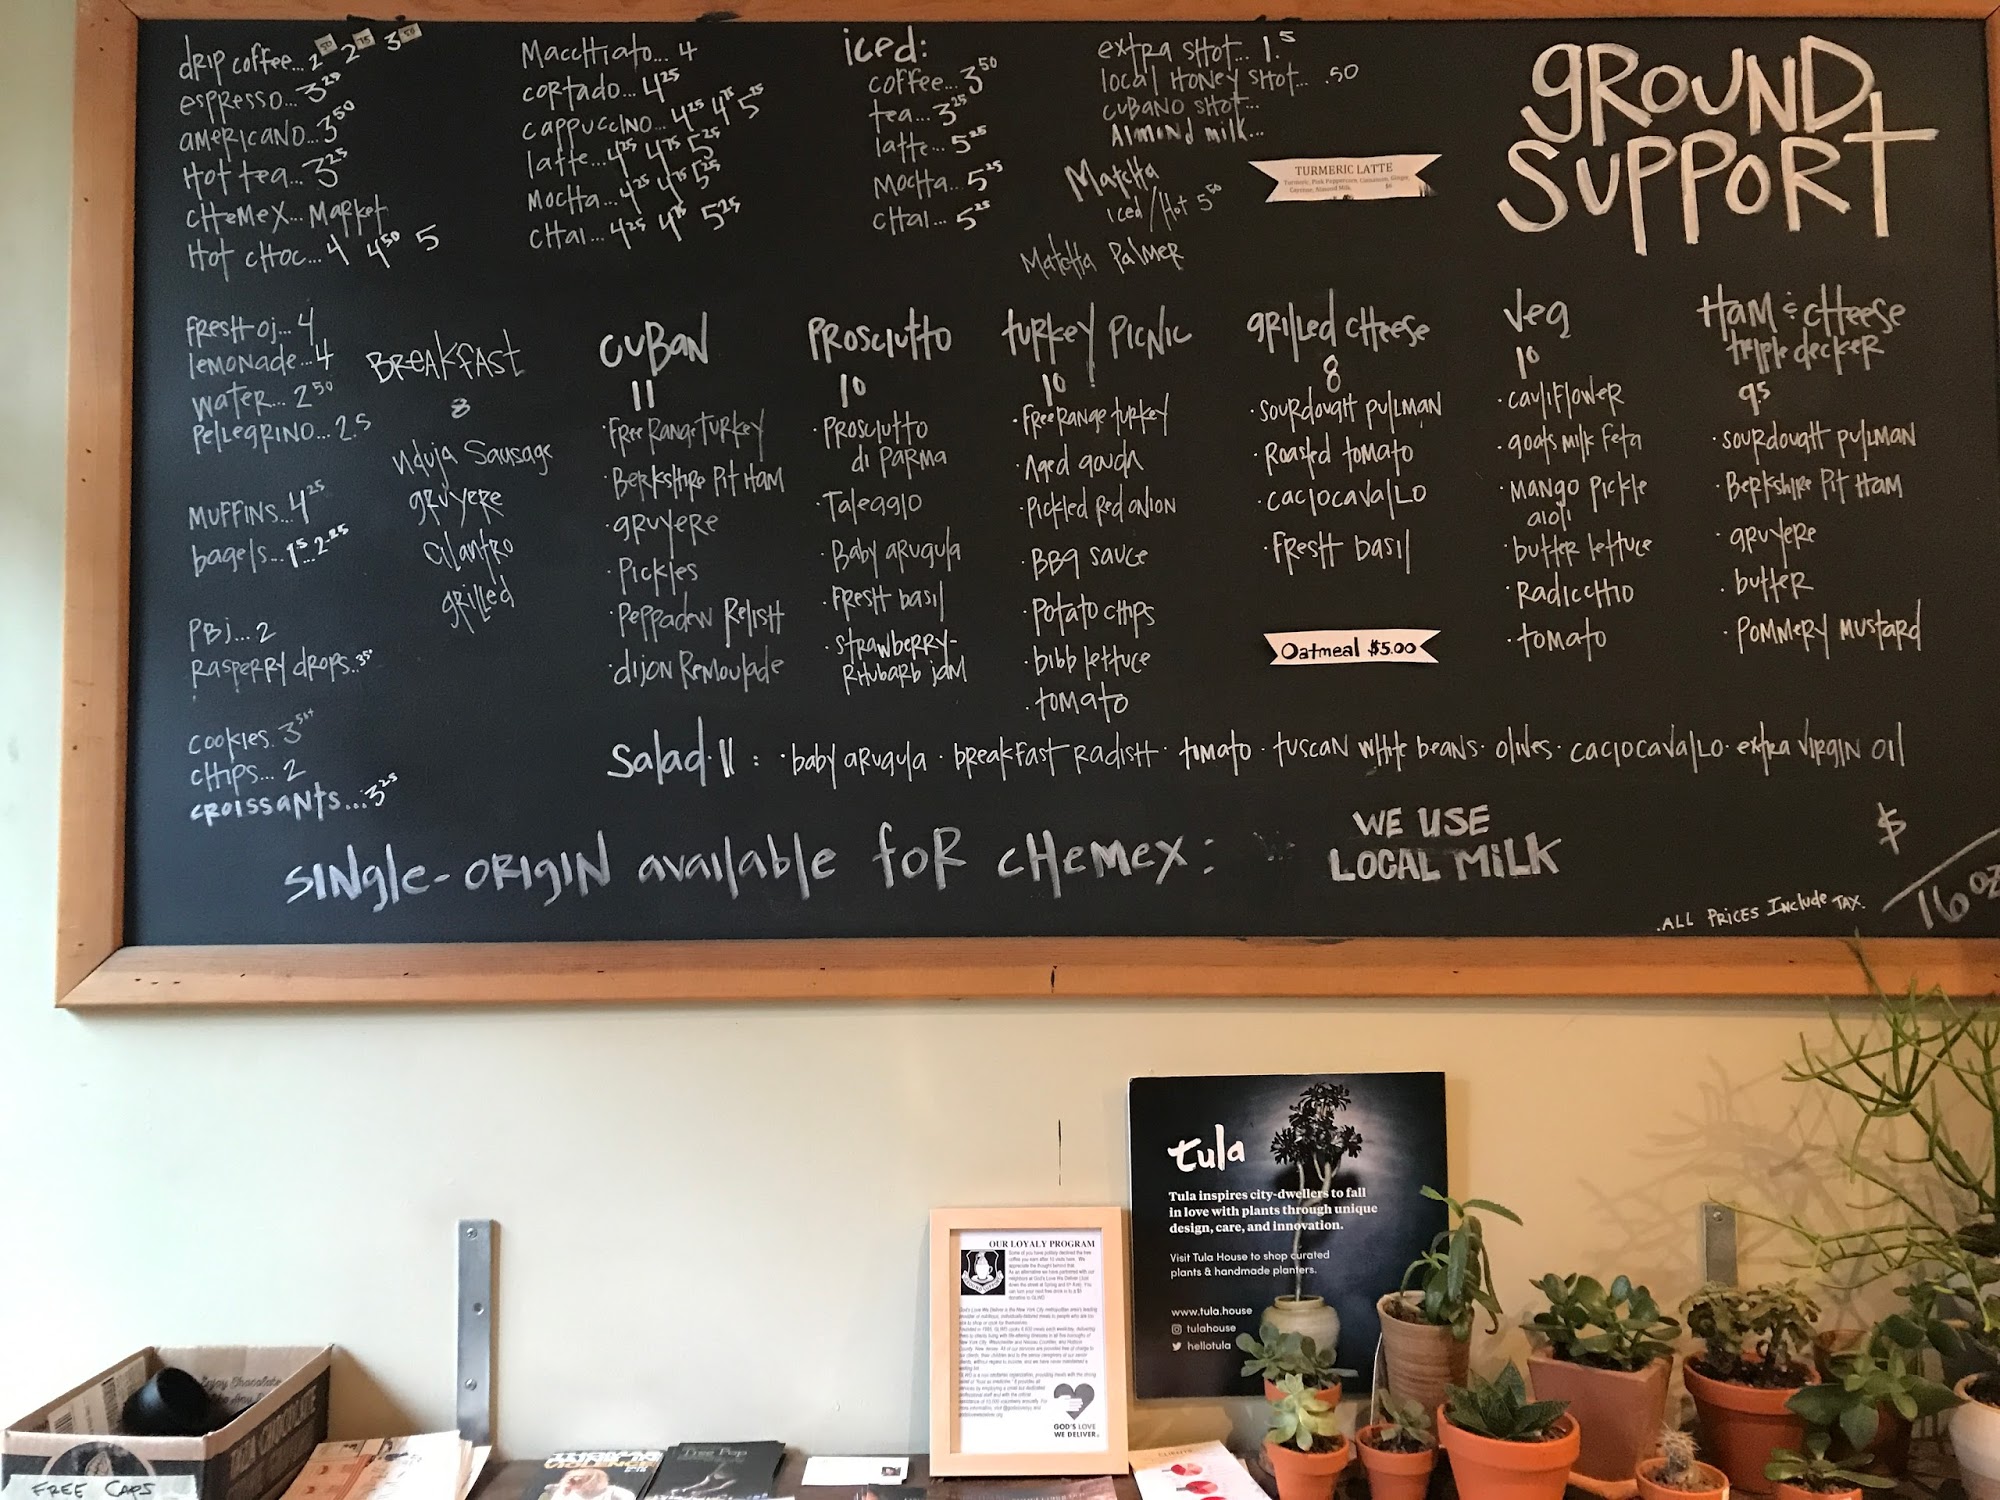 drip coffee... 2 50 2 75 3 50
espresso... 3 25
americano... 3 50
Hot tea... 3 25
CHeMeX... MarKet
Hot CHOC... 4 4 50 5
Macchiato... 4
cortado... 4 25
cappuccino... 4 25 4 75 5 25
latte... 4 25 4 75 5 25
MocHa... 4 25 4 75 5 25
CHai... 4 25 4 75 5 25
iced:
coffee... 3 50
tea... 3 25
latte... 5 25
MocHa... 5 25
CHai... 5 25
extra SHot... 1.5
local Honey SHot... .50
cubano SHot...
Almond milk...
Matcha
iced/Hot 5 50
Matcha Palmer
TURMERIC LATTE
Turmeric, Pink Peppercorn, Cinnamon, Ginger,
Cayenne, Almond Milk. $6
GROUND
SUPPORT
fresH oj... 4
lemonade... 4
water... 2 50
Pellegrino... 2.5
Muffins... 4 25
bagels... 1 5 2.25
PBj... 2
RaspeRRy drops.. 3 50
Cookies. 3 50+
CHips... 2
croissants... 3 25
BreaKfast
8
Nduja Sausage
gruyere
Cilantro
grilled
CuBan
11
· Free Range turkey
· Berkshire Pit Ham
· gruyere
· Pickles
· Peppadew RelisH
· dijon Remoulade
Prosciutto
10
· Prosciutto
di Parma
· Taleggio
· Baby arugula
· FresH basil
· strawberry-
RHubarb jam
turkey Picnic
10
· Free Range turkey
· Aged gouda
· Pickled Red onion
· BBQ sauce
· Potato CHips
· bibb lettuce
· tomato
grilled CHeese
8
· sourdougH pullman
· Roasted tomato
· caciocavallo
· FresH basil
Oatmeal $5.00
Veg
10
· cauliflower
· goats milk Feta
· Mango Pickle
aioli
· butter lettuce
· RadiccHio
· tomato
Ham & CHeese
triple decker
9.5
· sourdougH pullman
· Berkshire Pit Ham
· gruyere
· butter
· Pommery Mustard
Salad · 11 : · baby arugula · breakfast RadisH · tomato · tuscan wHite beans · olives · caciocavallo · extra virgin oil
Single-origin available for CHemex:
WE USE
LOCAL MiLK
$
16 oz
. ALL PRiCES InClude TAX.
tula
Tula inspires city-dwellers to fall
in love with plants through unique
design, care, and innovation.
Visit Tula House to shop curated
plants & handmade planters.
www.tula.house
tulahouse
hellotula
OUR LOYALY PROGRAM
GOD'S LOVE
WE DELIVER.
FREE CAPS